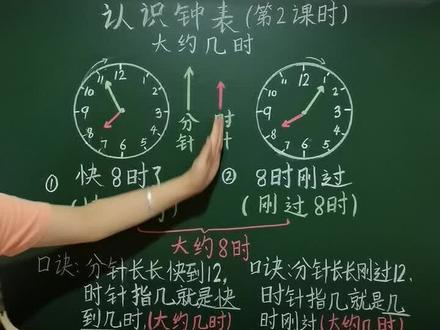 认识钟表(第2课时)
大约几时
11 12 1
10 2
9 3
8 4
7 6 5
分针
时针
11 12 1
10 2
9 3
8 4
7 6 5
① 快8时了
② 8时刚过
(刚过8时)
大约8时
口诀:分针长长快到12,
时针指几就是快
到几时,(大约几时)
口诀:分针长长刚过12,
时针指几就是几
时刚过(大约几时)